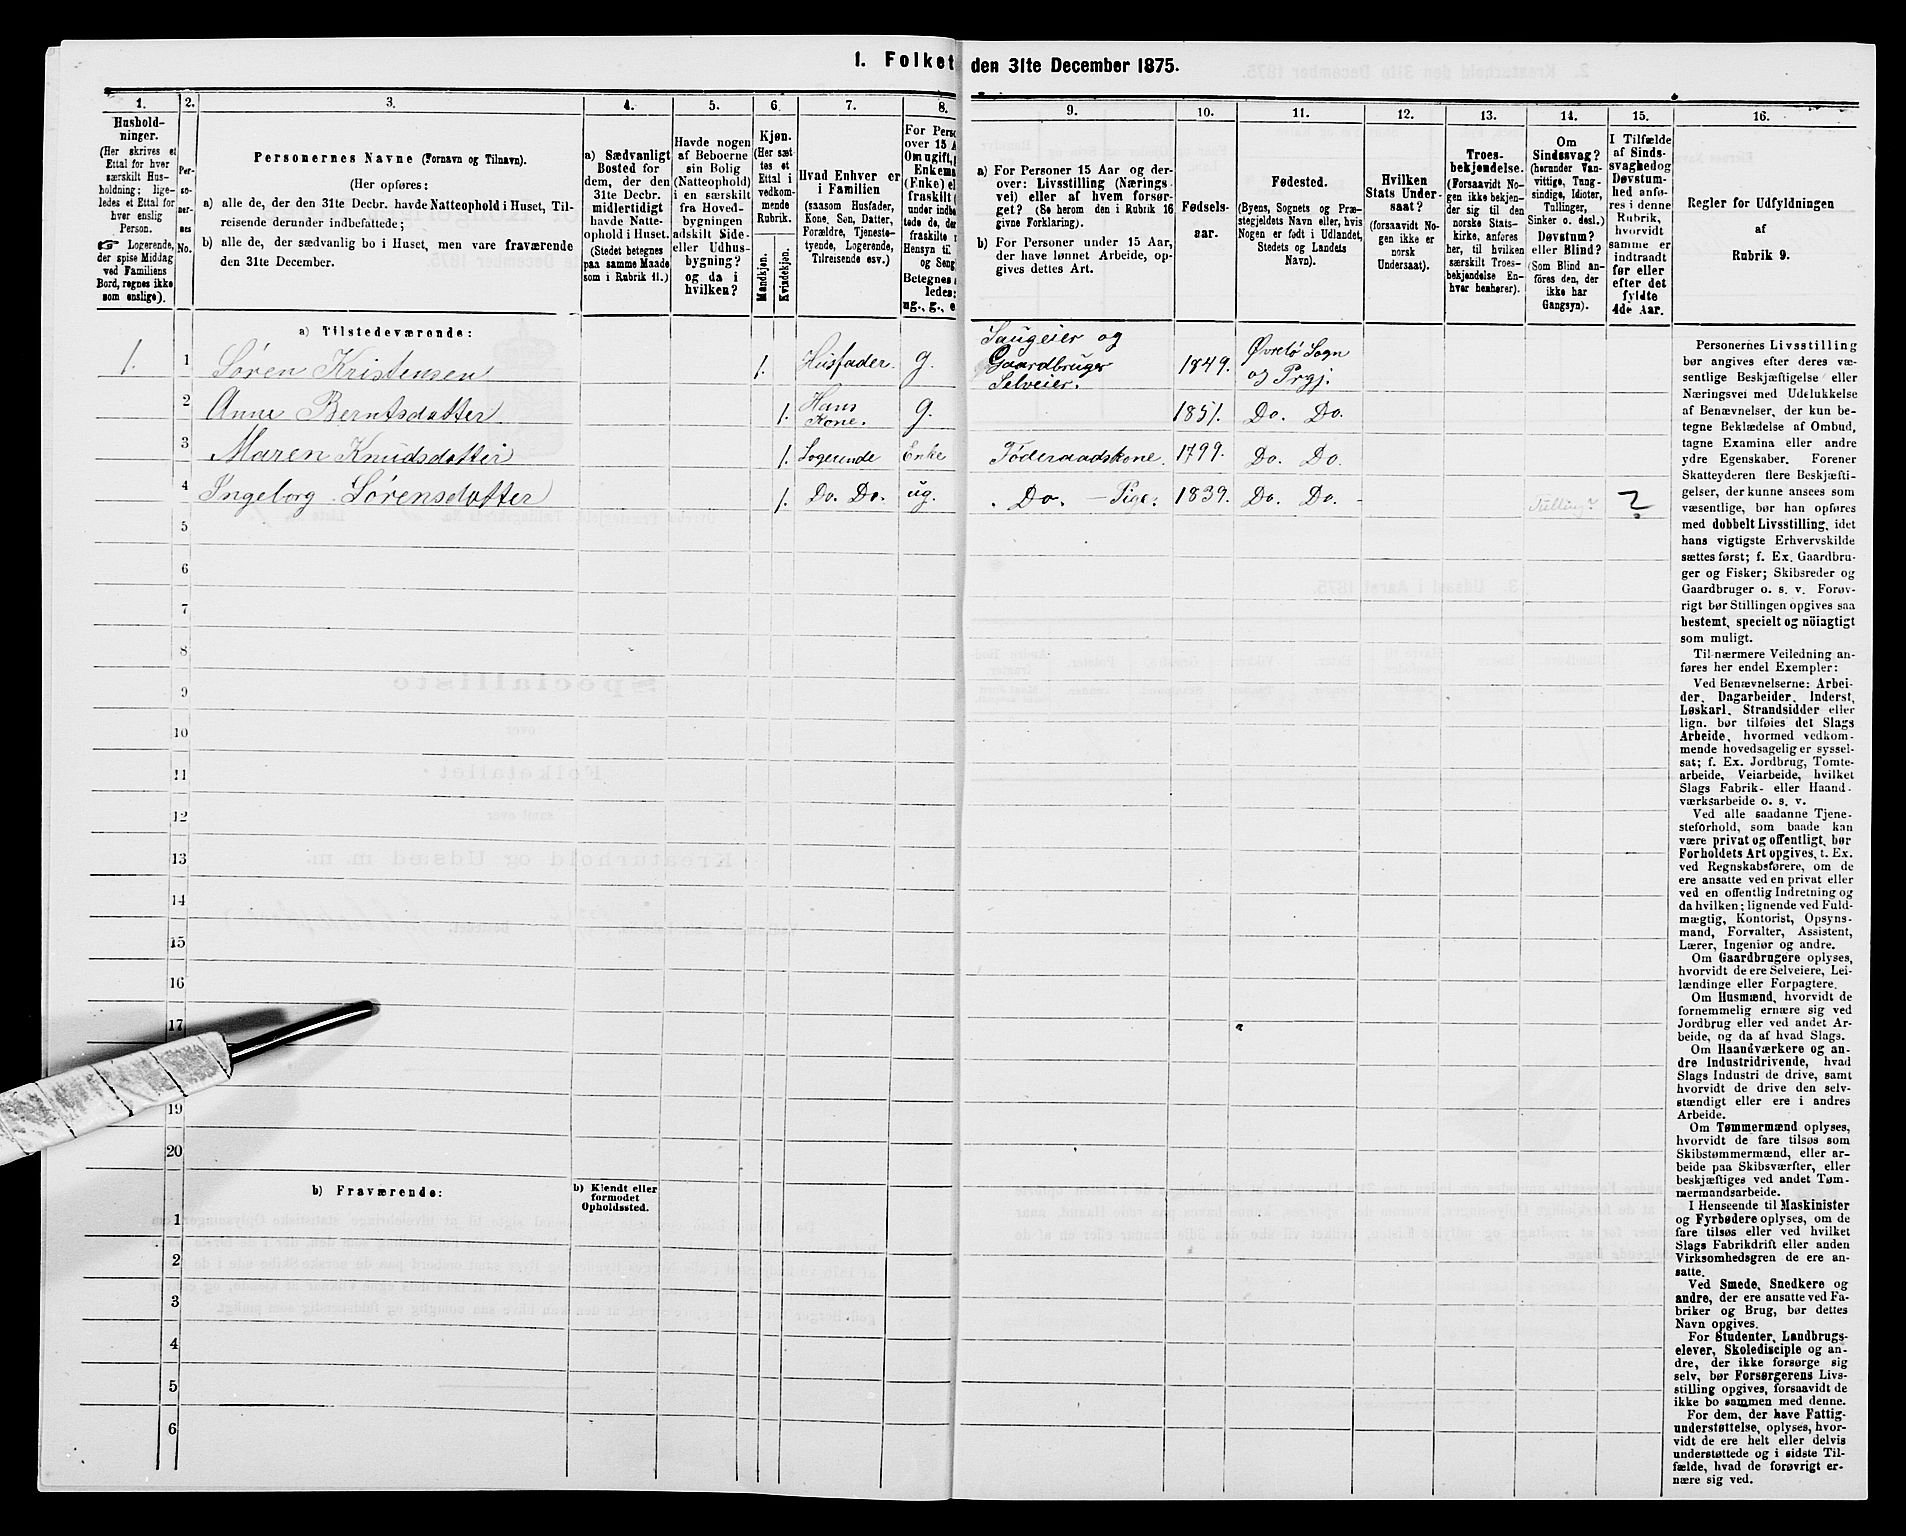 1. Folket den 31te December 1875.
1. 2. 3. 4. 5. 6. 7. 8. 9. 10. 11. 12. 13. 14. 15. 16.
Hushold-
ninger.
(Her skrives et
Ettal for hver
særskilt Hus-
holdning; lige-
ledes et Ettal for
hver enslig
Person.
☞ Logerende,
der spise Middag
ved Familiens
Bord, regnes ikke
som enslige).
Per-
so-
ner-
nes
No.
Personernes Navne (Fornavn og Tilnavn).
(Her opføres:
a) alle de, der den 31te Decbr. havde Natteophold i Huset, Til-
reisende derunder indbefattede;
b) alle de, der sædvanlig bo i Huset, men vare fraværende
den 31te December.
a) Sædvanligt
Bosted for
dem, der den
31te Decbr.
midlertidigt
havde Natte-
ophold i Huset.
(Stedet betegnes
paa samme Maade
som i Rubrik 11.)
Havde nogen
af Beboerne
sin Bolig
(Natteophold)
i en særskilt
fra Hoved-
bygningen
adskilt Side-
eller Udhus-
bygning?
og da i
hvilken?
Kjøn.
(Her sæt-
tes et
Ettal i
vedkom-
mende
Rubrik.
Mandkjøn.
Kvindekjøn.
Hvad Enhver er
i Familien
(saasom Husfader,
Kone, Søn, Datter,
Forældre, Tjeneste-
tyende, Logerende,
Tilreisende osv.)
For Perso
over 15 A
Om ugift,
Enkema
(Enke) el
fraskilt
under indbe
tede de, der
fraskilte
Hensyn til
og Seng
Betegnes
ledes:
ug., g., e
a) For Personer 15 Aar og der-
over: Livsstilling (Nærings-
vei) eller af hvem forsør-
get? (Se herom den i Rubrik 16
givne Forklaring).
b) For Personer under 15 Aar,
der have lønnet Arbeide, op-
gives dettes Art.
Fødsels-
aar.
Fødested.
(Byens, Sognets og Præ-
stegjeldets Navn eller, hvis
Nogen er født i Udlandet,
Stedets og Landets
Navn).
Hvilken
Stats Under-
saat?
(forsaavidt No-
gen ikke er
norsk
Undersaat).
Troes-
bekjendelse.
(Forsaavidt No-
gen ikke bekjen-
der sig til den
norske Stats-
kirke, anføres
her, til hvilken
særskilt Troes-
bekjendelse En-
hver henhører).
Om
Sindssvag?
(herunder Van-
vittige, Tung-
sindige, Idioter,
Tullinger,
Sinker o. desl.)
Døvstum?
eller Blind?
(Som Blind an-
føres den, der
ikke har
Gangsyn).
I Tilfælde
af Sinds-
svaghed og
Døvstum-
hed anfø-
res i denne
Rubrik,
hvorvidt
samme er
indtraadt
før eller
efter det
fyldte
4de Aar.
Regler for Udfyldningen
af
Rubrik 9.
a) Tilstedeværende:
1. 1 Søren Kristensen 1. Husfader. g. Saugeier og Gaardbruger Selveier. 1849. Øvrebø Sogn og Prgj.
2 Anne Berntsdatter 1. Hans Kone. g. 1851. Do. Do.
3 Maren Knudsdatter 1. Logerende Enke Føderaadskone. 1799. Do. Do.
4 Ingeborg Sørensdatter 1. Do. Do. ug. Do. — Pige. 1839. Do. Do. Tulling? ?
5
6
7
8
9
10
11
12
13
14
15
16
17
19
20
b) Fraværende:
b) Kjendt eller
formodet
Opholdssted.
1
2
3
4
5
6
Personernes Livsstilling
bør angives efter deres væ-
sentlige Beskjæftigelse eller
Næringsvei med Udelukkelse
af Benævnelser, der kun be-
tegne Beklædelse af Ombud,
tagne Examina eller andre
ydre Egenskaber. Forener
Skatteyderen flere Beskjæfti-
gelser, der kunne ansees som
væsentlige, bør han opføres
med dobbelt Livsstilling, idet
hans vigtigste Erhvervskilde
sættes først; f. Ex. Gaardbru-
ger og Fisker; Skibsreder og
Gaardbruger o. s. v. Forøv-
rigt bør Stillingen opgives saa
bestemt, specielt og nöiagtigt
som muligt.
Til nærmere Veiledning an-
føres her endel Exempler:
Ved Benævnelserne: Arbei-
der, Dagarbeider, Inderst,
Løskarl, Strandsidder eller
lign. bør tilføies det Slags
Arbeide, hvormed vedkom-
mende hovedsagelig er syssel-
sat; f. Ex. Jordbrug, Tomte-
arbeide, Veiarbeide, hvilket
Slags Fabrik- eller Haand-
værksarbeide o. s. v.
Ved alle saadanne Tjene-
steforhold, som baade kan
være privat og offentligt, bør
Forholdets Art opgives, t. Ex.
ved Regnskabsførere, om de
ere ansatte ved en privat eller
ved en offentlig Indretning og
da hvilken; lignende ved Fuld-
mægtig, Kontorist, Opsyns-
mand, Forvalter, Assistent,
Lærer, Ingeniør og andre.
Om Gaardbrugere oplyses,
hvorvidt de ere Selveiere, Lei-
lændinge eller Forpagtere.
Om Husmænd, hvorvidt de
fornemmelig ernære sig ved
Jordbrug eller ved andet Ar-
beide, og da af hvad Slags.
Om Haandværkere og an-
dre Industridrivende, hvad
Slags Industri de drive, samt
hvorvidt de drive den selv-
stændigt eller ere i andres
Arbeide.
Om Tømmermænd oplyses,
hvorvidt de fare tilsøs som
Skibstømmermænd, eller ar-
beide paa Skibsværfter, eller
beskjæftiges ved andet Tøm-
mermandsarbeide.
I Henseende til Maskinister
og Fyrbødere oplyses, om de
fare tilsøs eller ved hvilket
Slags Fabrikdrift eller anden
Virksomhedsgren de ere an-
satte.
Ved Smede, Snedkere og
andre, der ere ansatte ved Fa-
briker og Brug, bør dettes
Navn opgives.
For Studenter, Landbrugs-
elever, Skoledisciple og an-
dre, der ikke forsørge sig
selv, bør Forsørgerens Livs-
stilling opgives, forsaavidt de
ikke bo sammen med denne.
For dem, der have Fattig-
understøttelse, oplyses, hvor-
vidt de ere helt eller delvis
understøttede og i sidste Til-
fælde, hvad de forøvrigt er-
nære sig ved.